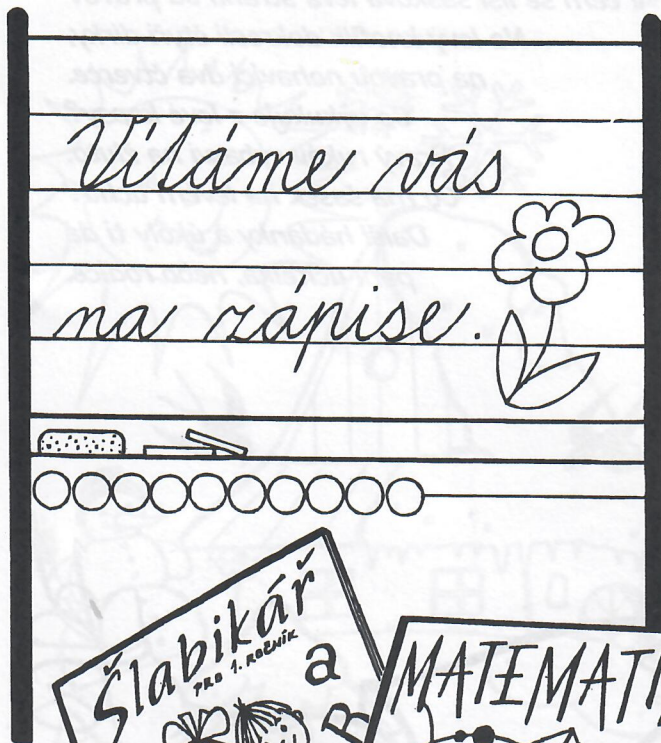 Vítáme vás
na zápise.
Šlabikář
PRO 1. ROČNÍK
a
B
MATEMATI